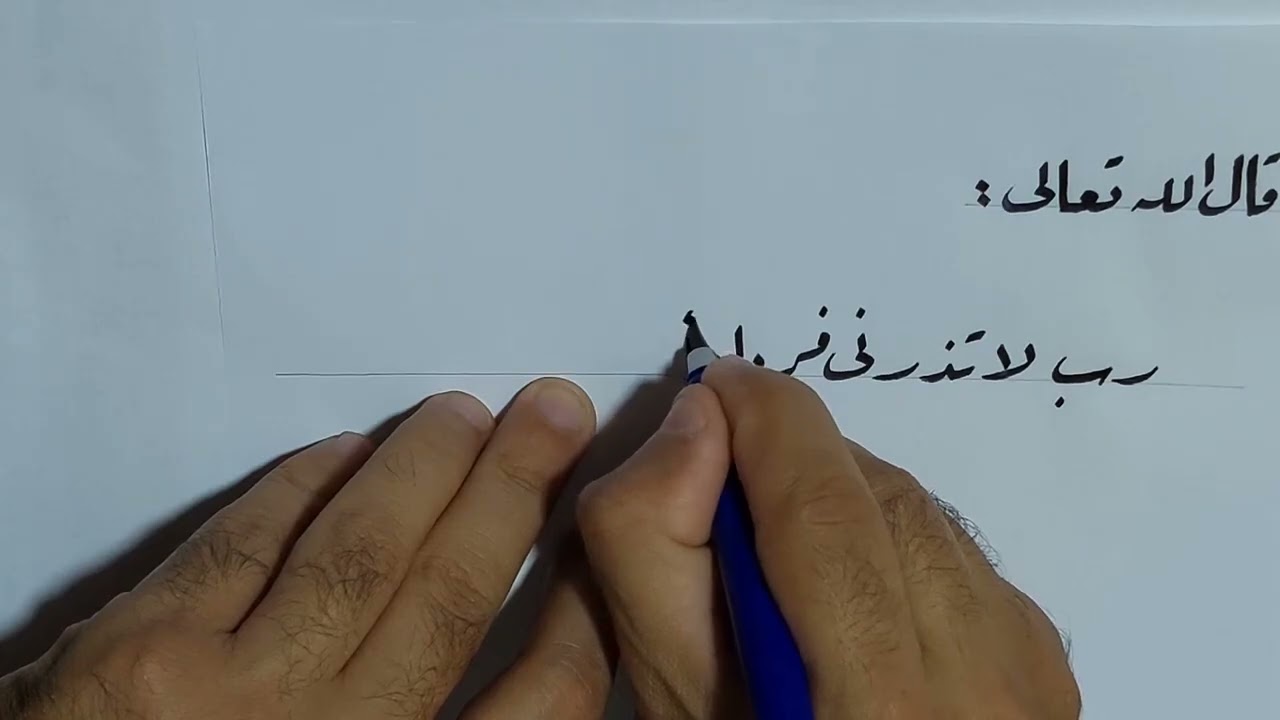 قال الله تعالى :
رب لا تذرنى فردا